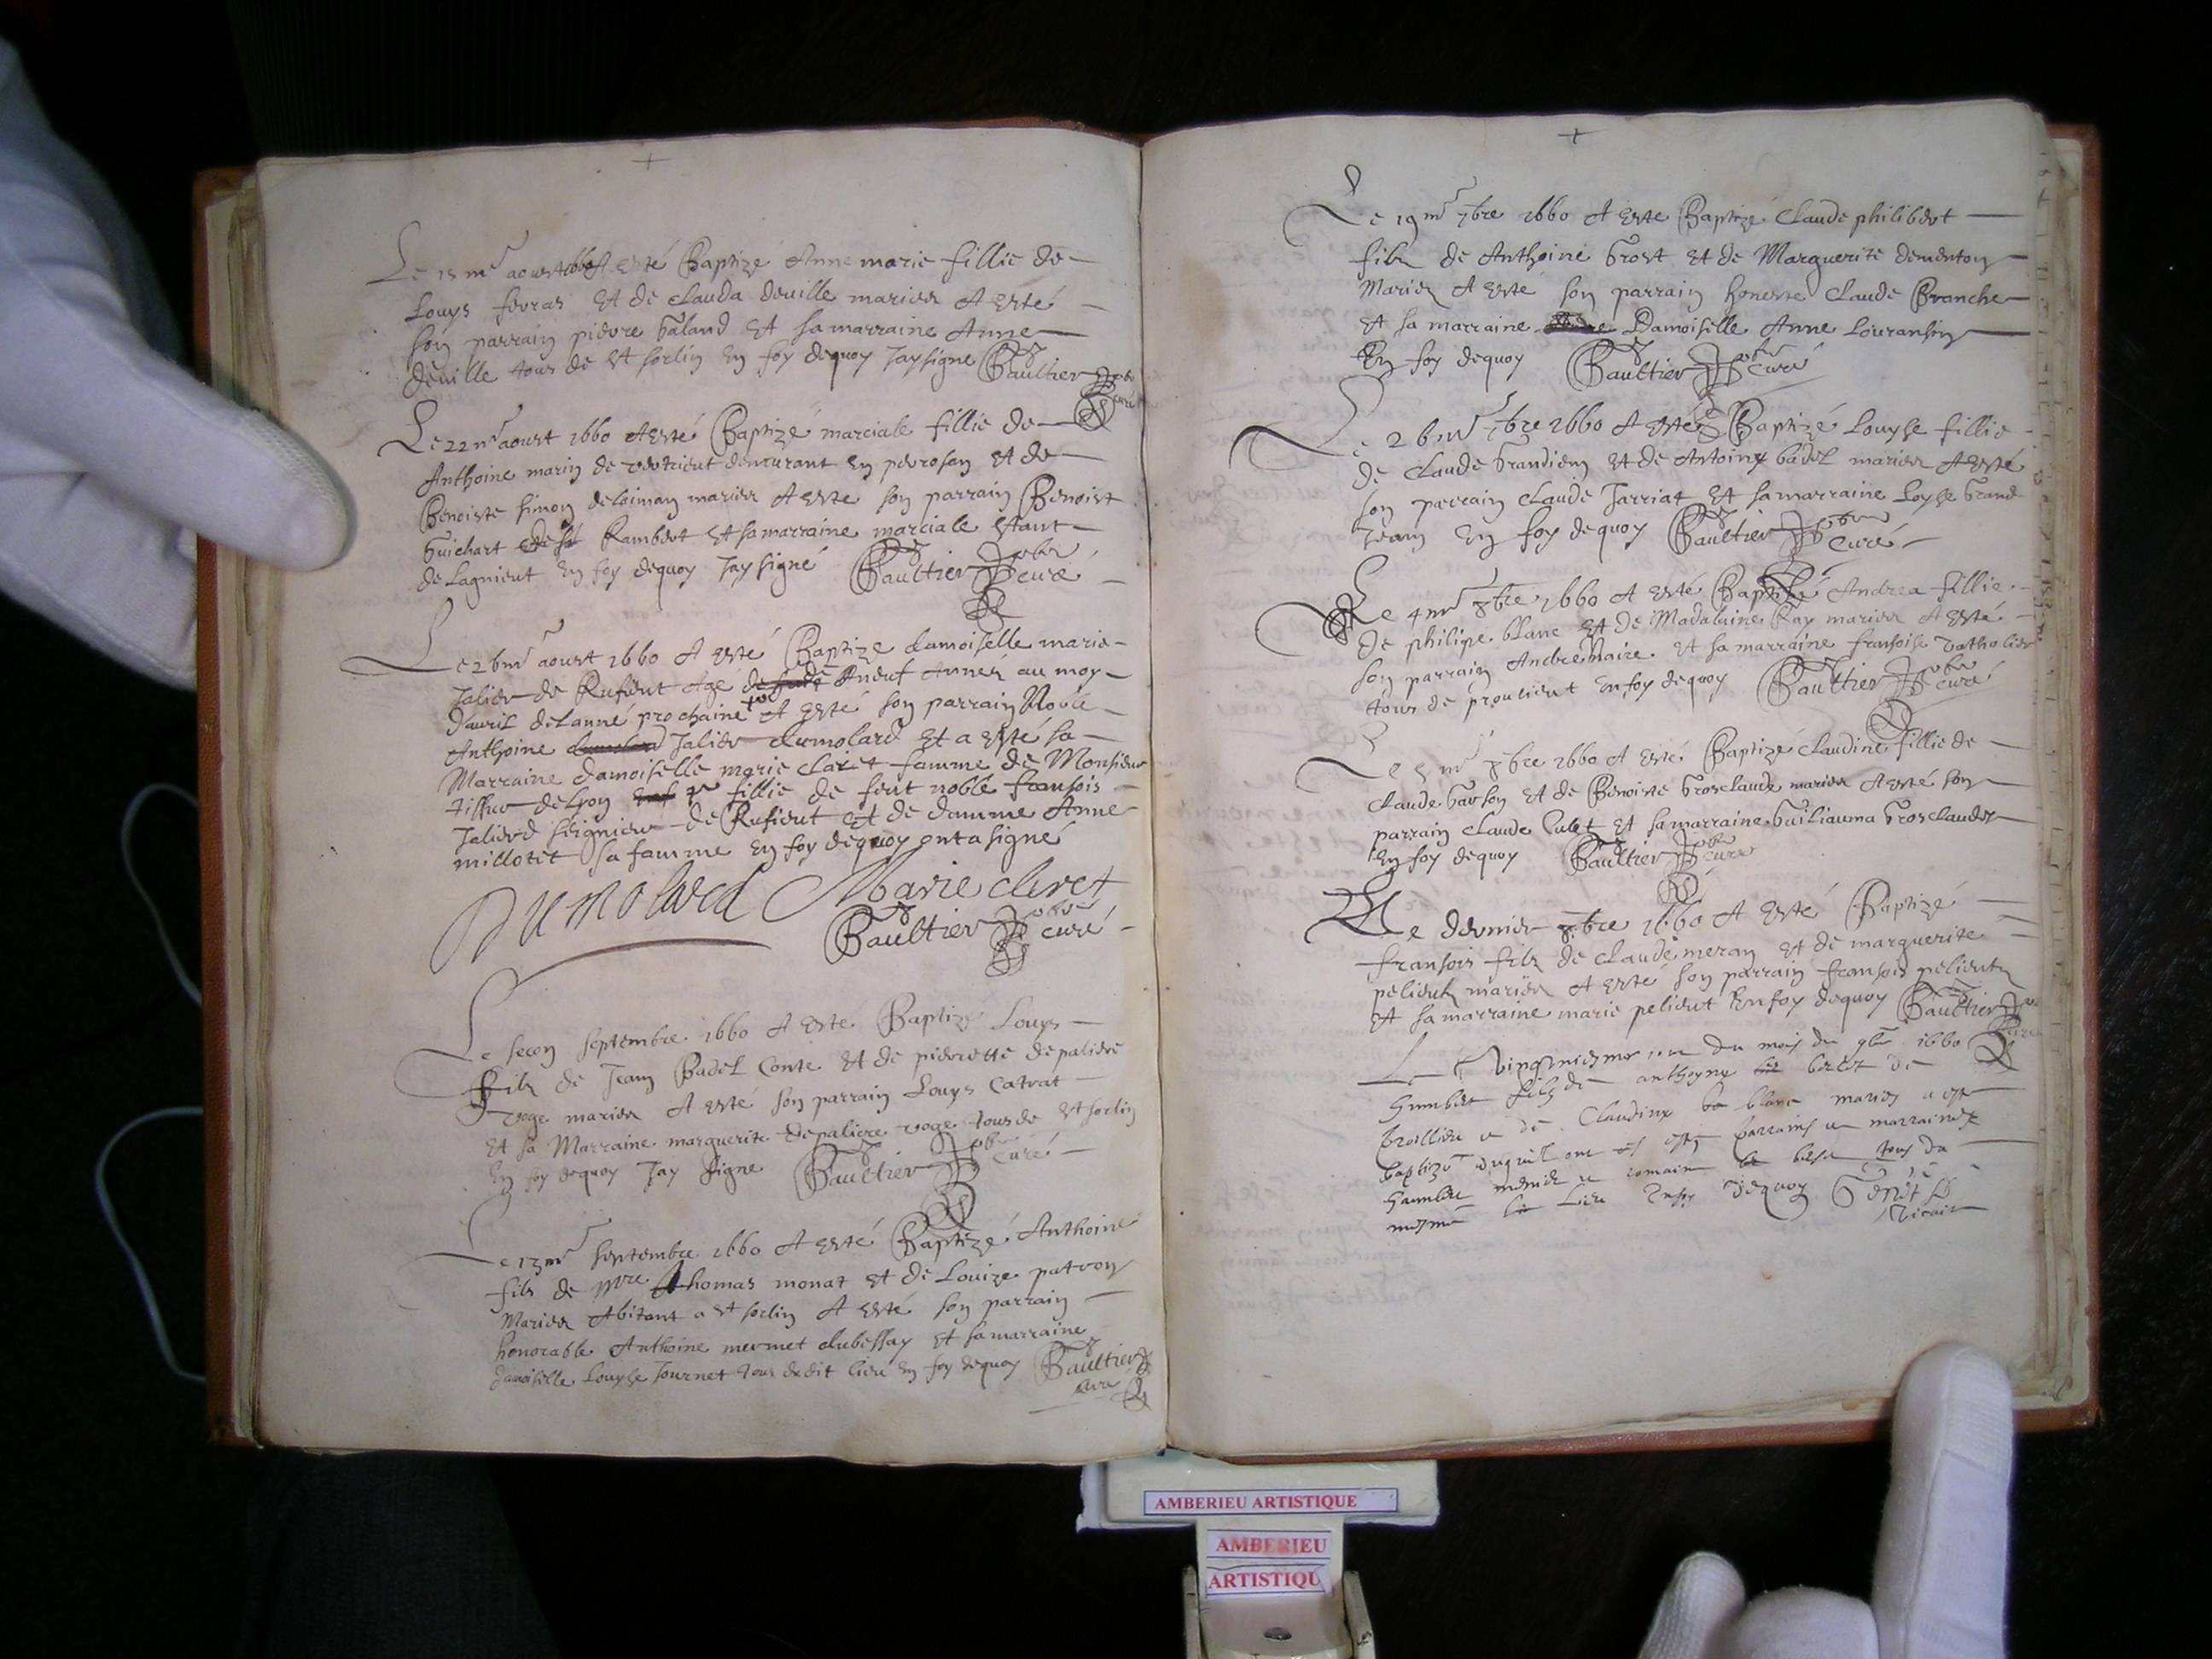 Le 15 me aoust 1660 A esté Baptizé Anne marie fillie de
Louys fevras et de Clauda deville mariés A esté
son parrain pierre Galand et sa marraine Anne
deville tous de st sorlin en foy dequoy Jay signe Gaultier pbr
curé
Le 22 me aoust 1660 A esté Baptizé marciale fillie de
Anthoine marin de demeurant en et de
Benoiste simon mariés A esté son parrain Benoist
Guichart Rambert et sa marraine marciale
de Lagnieut en foy dequoy Jay signé Gaultier pbr curé
Le 26 me aoust 1660 A esté Baptizé damoiselle marie
Jalier de Rufieut Agé de neuf Année au moy
d'avril delanné prochaine A esté son parrain Noble
Anthoine Jalier dumolard et a esté sa
Marraine damoiselle marie claret famme de Monsieur
de Lyon fillie de feut noble fransois
Jalierd seignieur de Rufieut et de damme Anne
millotet sa famme en foy dequoy ont a signé
Dumolard Marie cleret
Gaultier pbr curé
Le secon septembre 1660 A esté Baptizé Louys
fils de Jean Badel Conte et de pierrette depaliere
voge mariés A esté son parrain Louys Catrat
et sa Marraine marguerite depaliere voge tous de st sorlin
en foy dequoy Jay signe Gaultier pbr curé
Le 13 me septembre 1660 A esté Baptizé Anthoine
fils de mre Thomas monat et de Louize patron
Mariés Abitant a st sorlin A esté son parrain
honorable Anthoine mermet dubessay et sa marraine
damoiselle Louyse tournet tous dedit lieu en foy dequoy Gaultier
curé
Le 19 me 7bre 1660 A esté Baptizé Claude philibert
fils de Anthoine Grost et de Marguerite dementon
Mariés A esté son parrain honeste Claude Branche
et sa marraine Damoiselle Anne
En foy dequoy Gaultier pbr curé
Le 26 me 7bre 1660 A esté Baptizé Louyse fillie
de Claude Grandjean et de Antoine badel mariés A esté
son parrain Claude Jarriat et sa marraine Loyse Grand
Jean En foy dequoy Gaultier pbr curé
Le 4 me 8bre 1660 A esté Baptizé Andrea fillie
de philipe blanc et de Madalaine Ray mariés A esté
son parrain Andre maire et sa marraine fransoise
tous de proulieut en foy dequoy Gaultier pbr curé
Le 5 me 8bre 1660 A esté Baptizé Claudine fillie de
Claude Garson et de Benoiste Grosclaude mariés A esté son
parrain Claude et sa marraine Guiliauma Grosclaudes
En foy dequoy Gaultier pbr curé
Le dernier 8bre 1660 A esté Baptizé
fransois fils de Claude meran et de marguerite
pelieut mariés A esté son parrain fransois pelieut
et sa marraine marie pelieut En foy dequoy Gaultier pbr
curé
Le Vingt du mois du 9bre 1660
humbert filz de anthoyne de
de Claudine blanc maries a esté
baptizé esté parrains et marraine
humbert et romaine tous du
mesme lieu En foy dequoy
vicaire
AMBERIEU ARTISTIQUE
AMBERIEU
ARTISTIQU